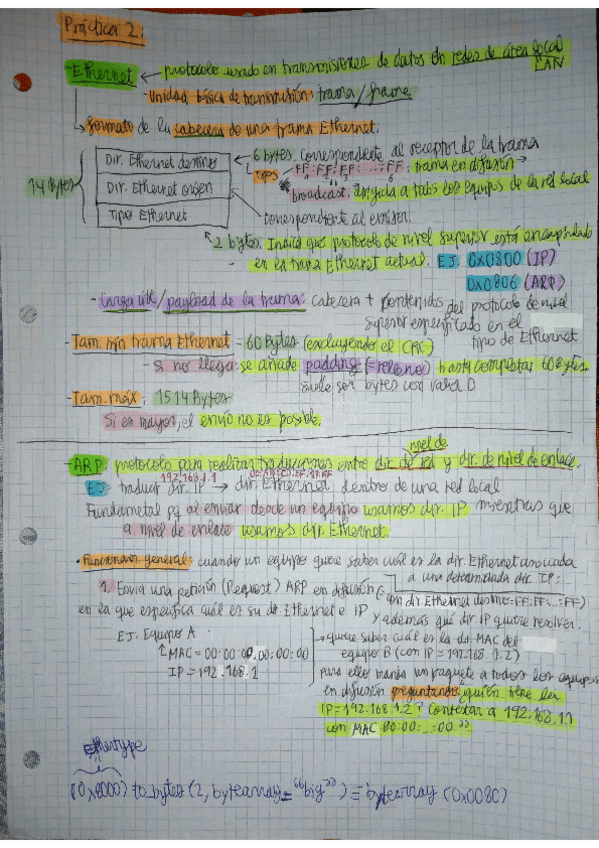 Práctica 2:
Ethernet ← protocolo usado en transmisiones de datos en redes de área local
LAN
- Unidad básica de transmisión: trama / frame
→ formato de la cabecera de una trama Ethernet.
14 Bytes
Dir. Ethernet destino
Dir. Ethernet origen
Tipo Ethernet
6 bytes. Correspondiente al receptor de la trama
Tipos FF:FF:FF:...:FF: trama en difusión →
broadcast. dirigida a todos los equipos de la red local
correspondiente al emisor.
2 bytes. Indica qué protocolo de nivel superior está encapsulado
en esa trama Ethernet actual. EJ: 0x0800 (IP)
0x0806 (ARP)
- Carga útil / payload de la trama: cabecera + contenidos del protocolo de nivel
superior especificado en el
tipo de Ethernet
- Tam. mín trama Ethernet = 60 Bytes (excluyendo el CRC)
- Si no llega se añade padding (=relleno) hasta completar 60 Bytes.
suele ser bytes con valor 0
- Tam. máx: 1514 Bytes
Si es mayor, el envío no es posible.
nivel de
- ARP: protocolo para realizar traducciones entre dir. de red y dir. de nivel de enlace.
192.168.1.1
EJ: traducir dir. IP → dir. Ethernet dentro de una red local
Fundametal pq al enviar desde un equipo usamos dir. IP mientras que
a nivel de enlace usamos dir. Ethernet.
• Funcionam. general: cuando un equipo quiere saber cuál es la dir. Ethernet asociada
a una determinada dir IP:
1. Envía una petición (Request) ARP en difusión (con dir Ethernet destino=FF:FF:...:FF)
en la que especifica cuál es su dir. Ethernet e IP y además que dir IP quiere resolver.
EJ. Equipo A
MAC=00:00:00:00:00:00
IP=192.168.1
→ quiere saber cuál es la dir. MAC del
equipo B (con IP = 192.168.1.2)
para ello manda un paquete a todos los equipos
en difusión preguntando "¿quién tiene la
IP=192.168.1.2? Contestar a 192.168.1.1
con MAC 00:00:...:00"
Ethertype
(0x8000) to_bytes (2, bytearray="big") = bytearray (0x0080)